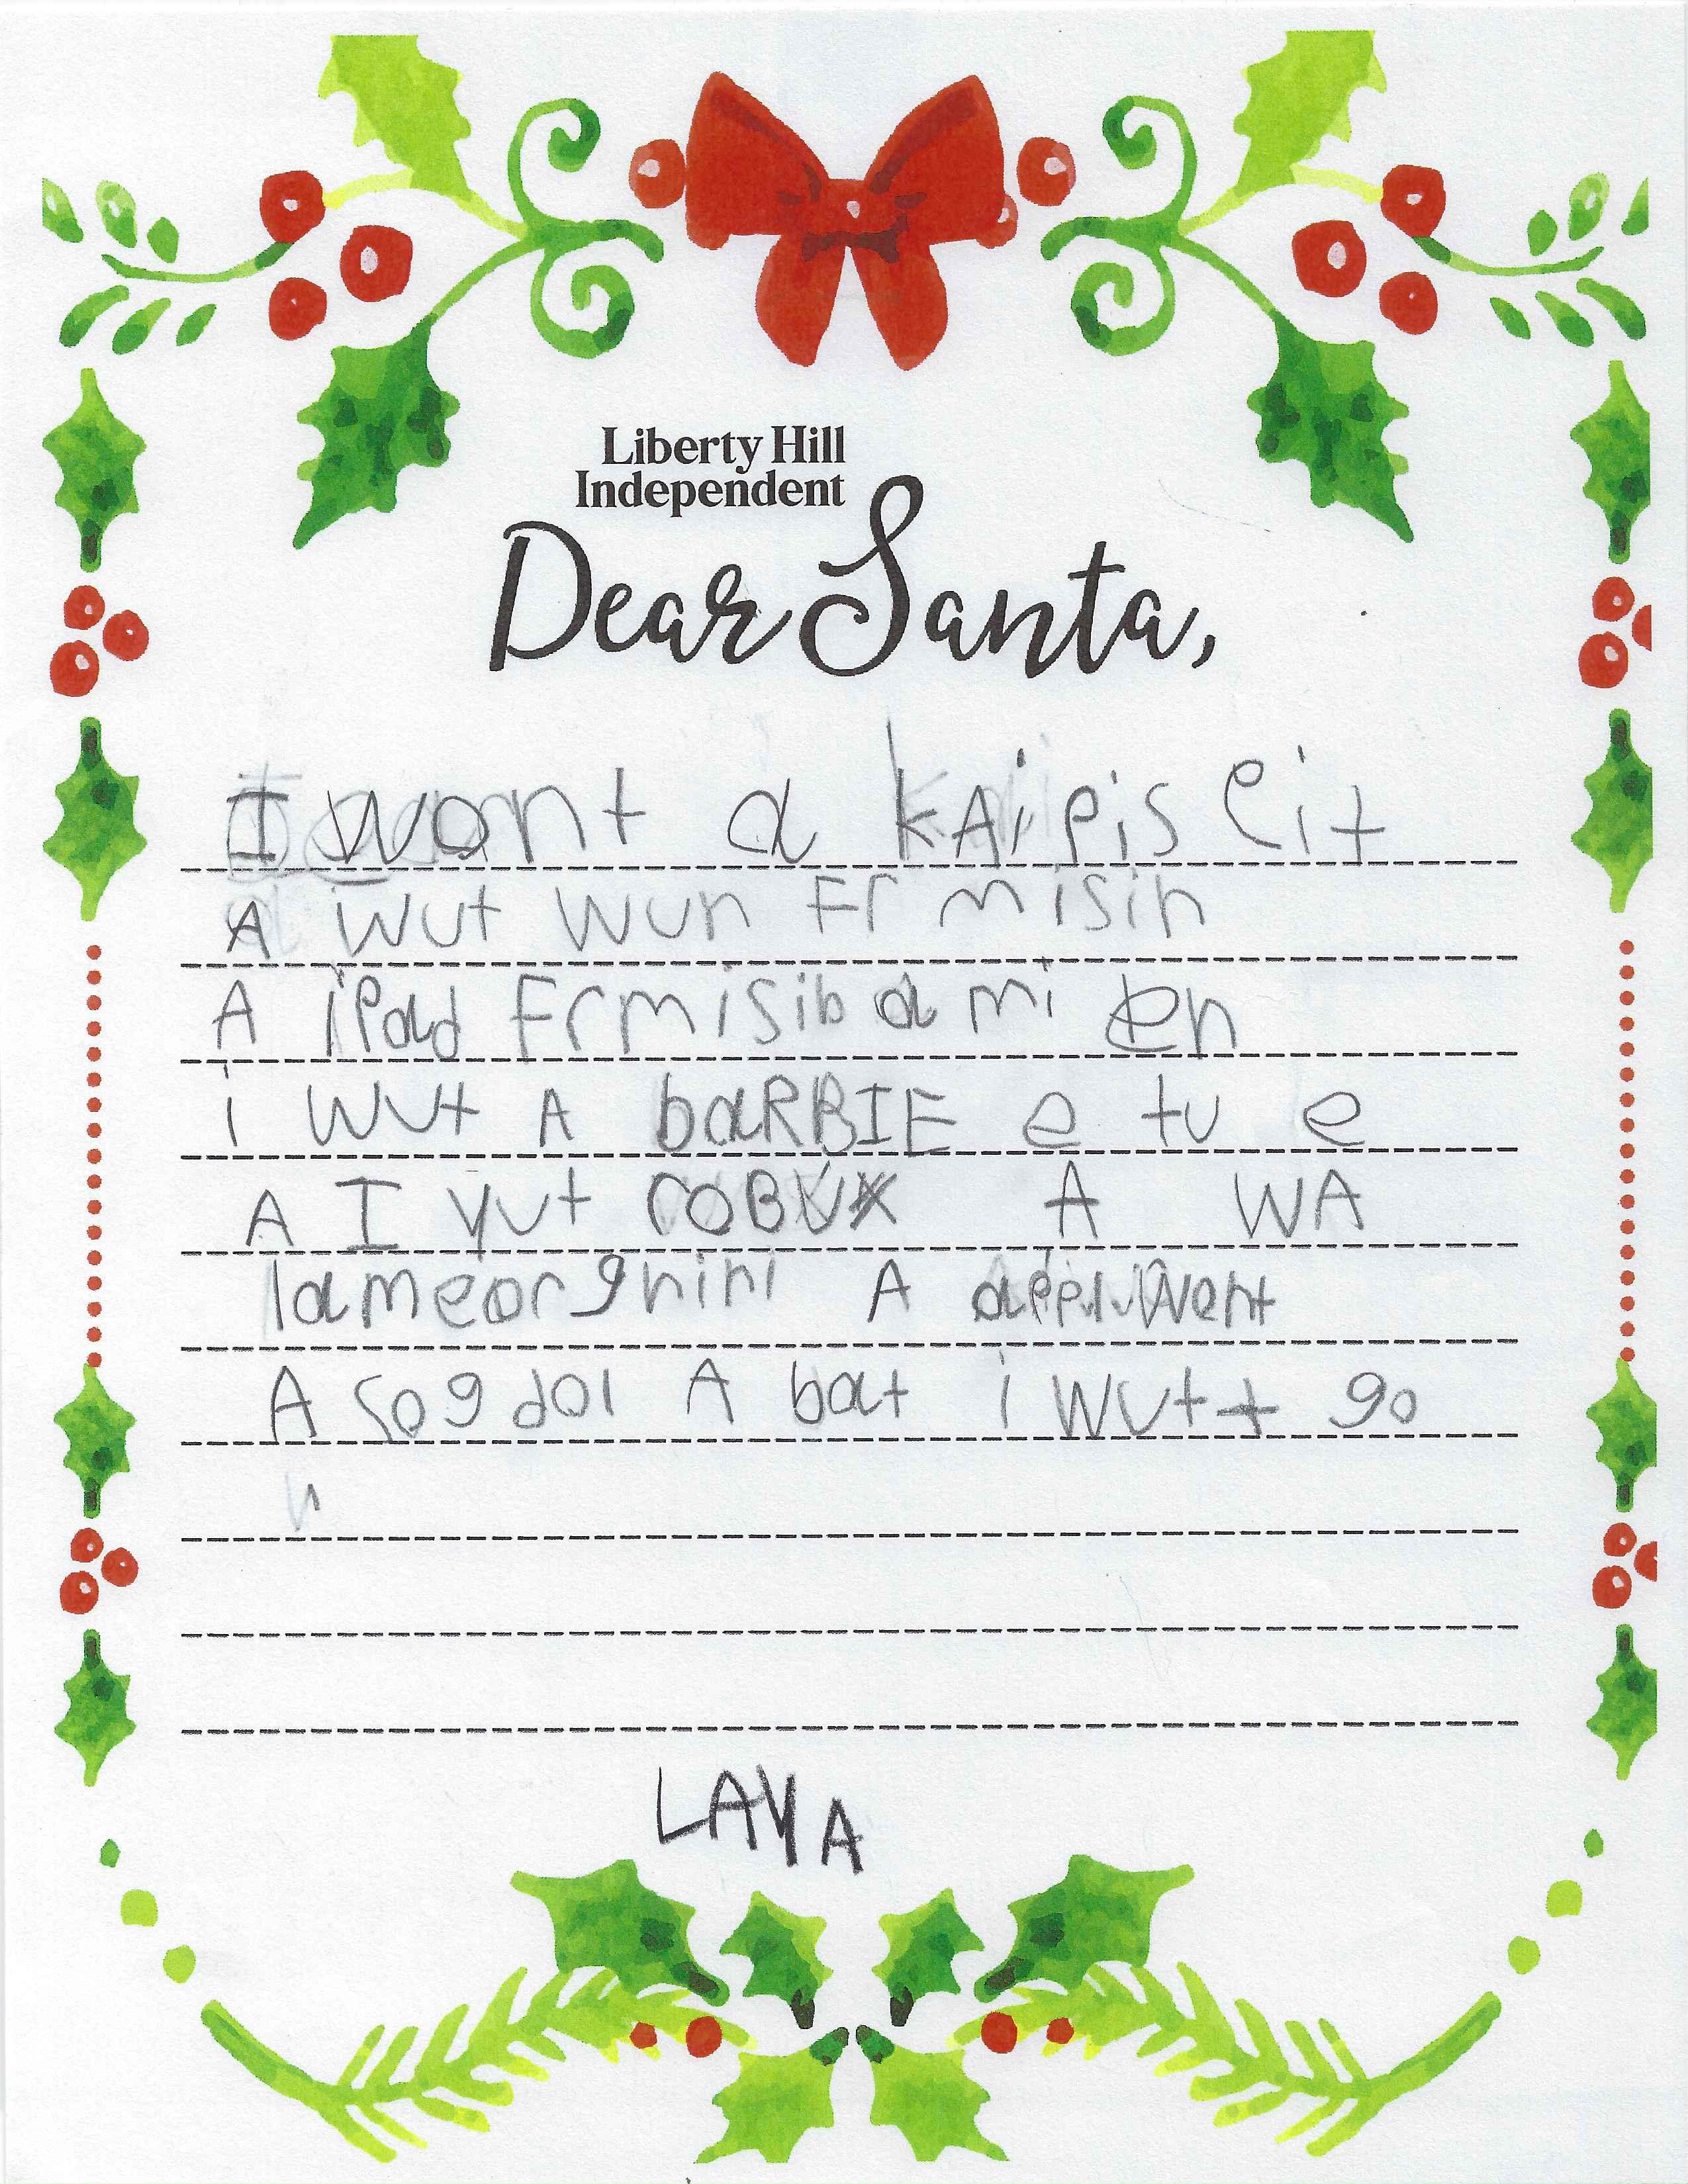 Liberty Hill
Independent
Dear Santa,
I wont a kAipis eit
A iwut wun Fr misin
A ipad Frmisib a mi en
i wut A baRBIE e tu e
A I yut roBUX A WA
lameorghini A appl went
A sog dol A bat i wut t go
LAYA